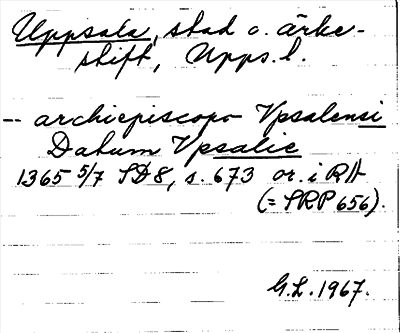 Uppsala, stad o. ärke-
stift, Upps. l.
-- archiepiscopo Vpsalensi
Datum Vpsalie
1365 5/7 SD 8, s. 673 or. i RA
(= SRP 656).
G.L. 1967.